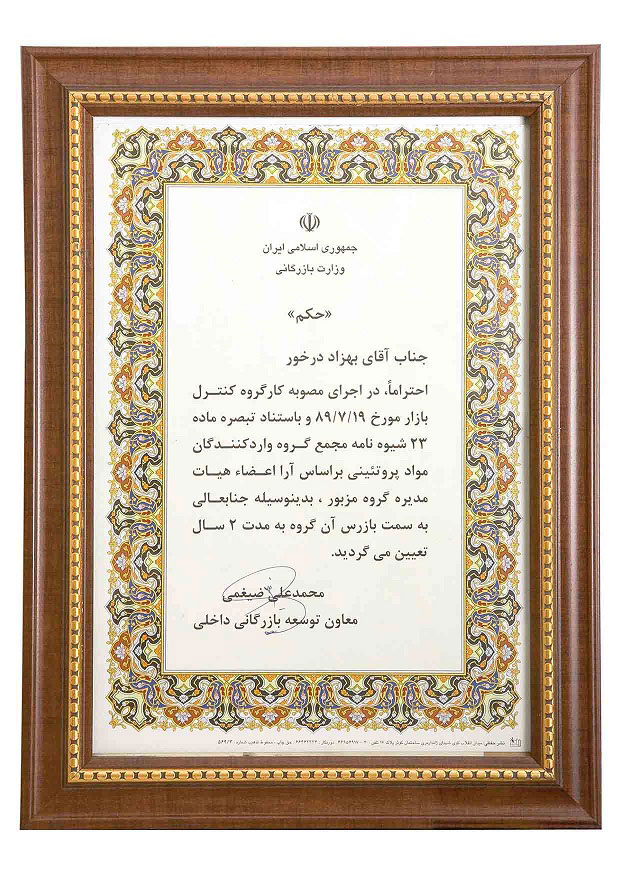 جمهوری اسلامی ایران
وزارت بازرگانی
«حکم»
جناب آقای بهزاد درخور
احتراماً، در اجرای مصوبه کارگروه کنترل
بازار مورخ ۸۹/۷/۱۹ و باستناد تبصره ماده
۲۳ شیوه نامه مجمع گروه واردکنندگان
مواد پروتئینی براساس آرا اعضاء هیات
مدیره گروه مزبور ، بدینوسیله جنابعالی
به سمت بازرس آن گروه به مدت ۲ سال
تعیین می گردید.
محمدعلی ضیغمی
معاون توسعه بازرگانی داخلی